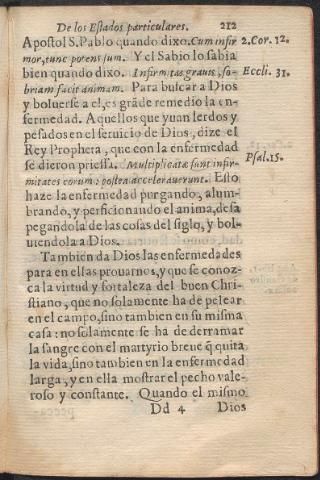 De los Estados particulares. 212
Apostol S. Pablo quando dixo. Cum infir 2. Cor. 12.
mor, tunc potens sum. Y el Sabio lo sabia
bien quando dixo. Infirmitas grauis, so- Eccli. 31.
briam facit animam. Para buscar a Dios
y boluerse a el, es grãde remedio la en-
fermedad. Aquellos que yuan lerdos y
pesados en el seruicio de Dios, dize el
Rey Propheta, que con la enfermedad
se dieron priessa. Multiplicatæ sunt infir- Psal. 15.
mitates eorum: postea accelerauerunt. Esto
haze la enfermedad purgando, alum-
brando, y perficionando el anima, desa
pegandola de las cosas del siglo, y bol-
uiendola a Dios.
Tambien da Dios las enfermedades
para en ellas prouarnos, y que se conoz-
ca la virtud y fortaleza del buen Chri-
stiano, que no solamente ha de pelear
en el campo, sino tambien en su misma
casa: no solamente se ha de derramar
la sangre con el martyrio breue q̃ quita
la vida, sino tambien en la enfermedad
larga, y en ella mostrar el pecho vale-
roso y constante. Quando el mismo
Dd 4 Dios